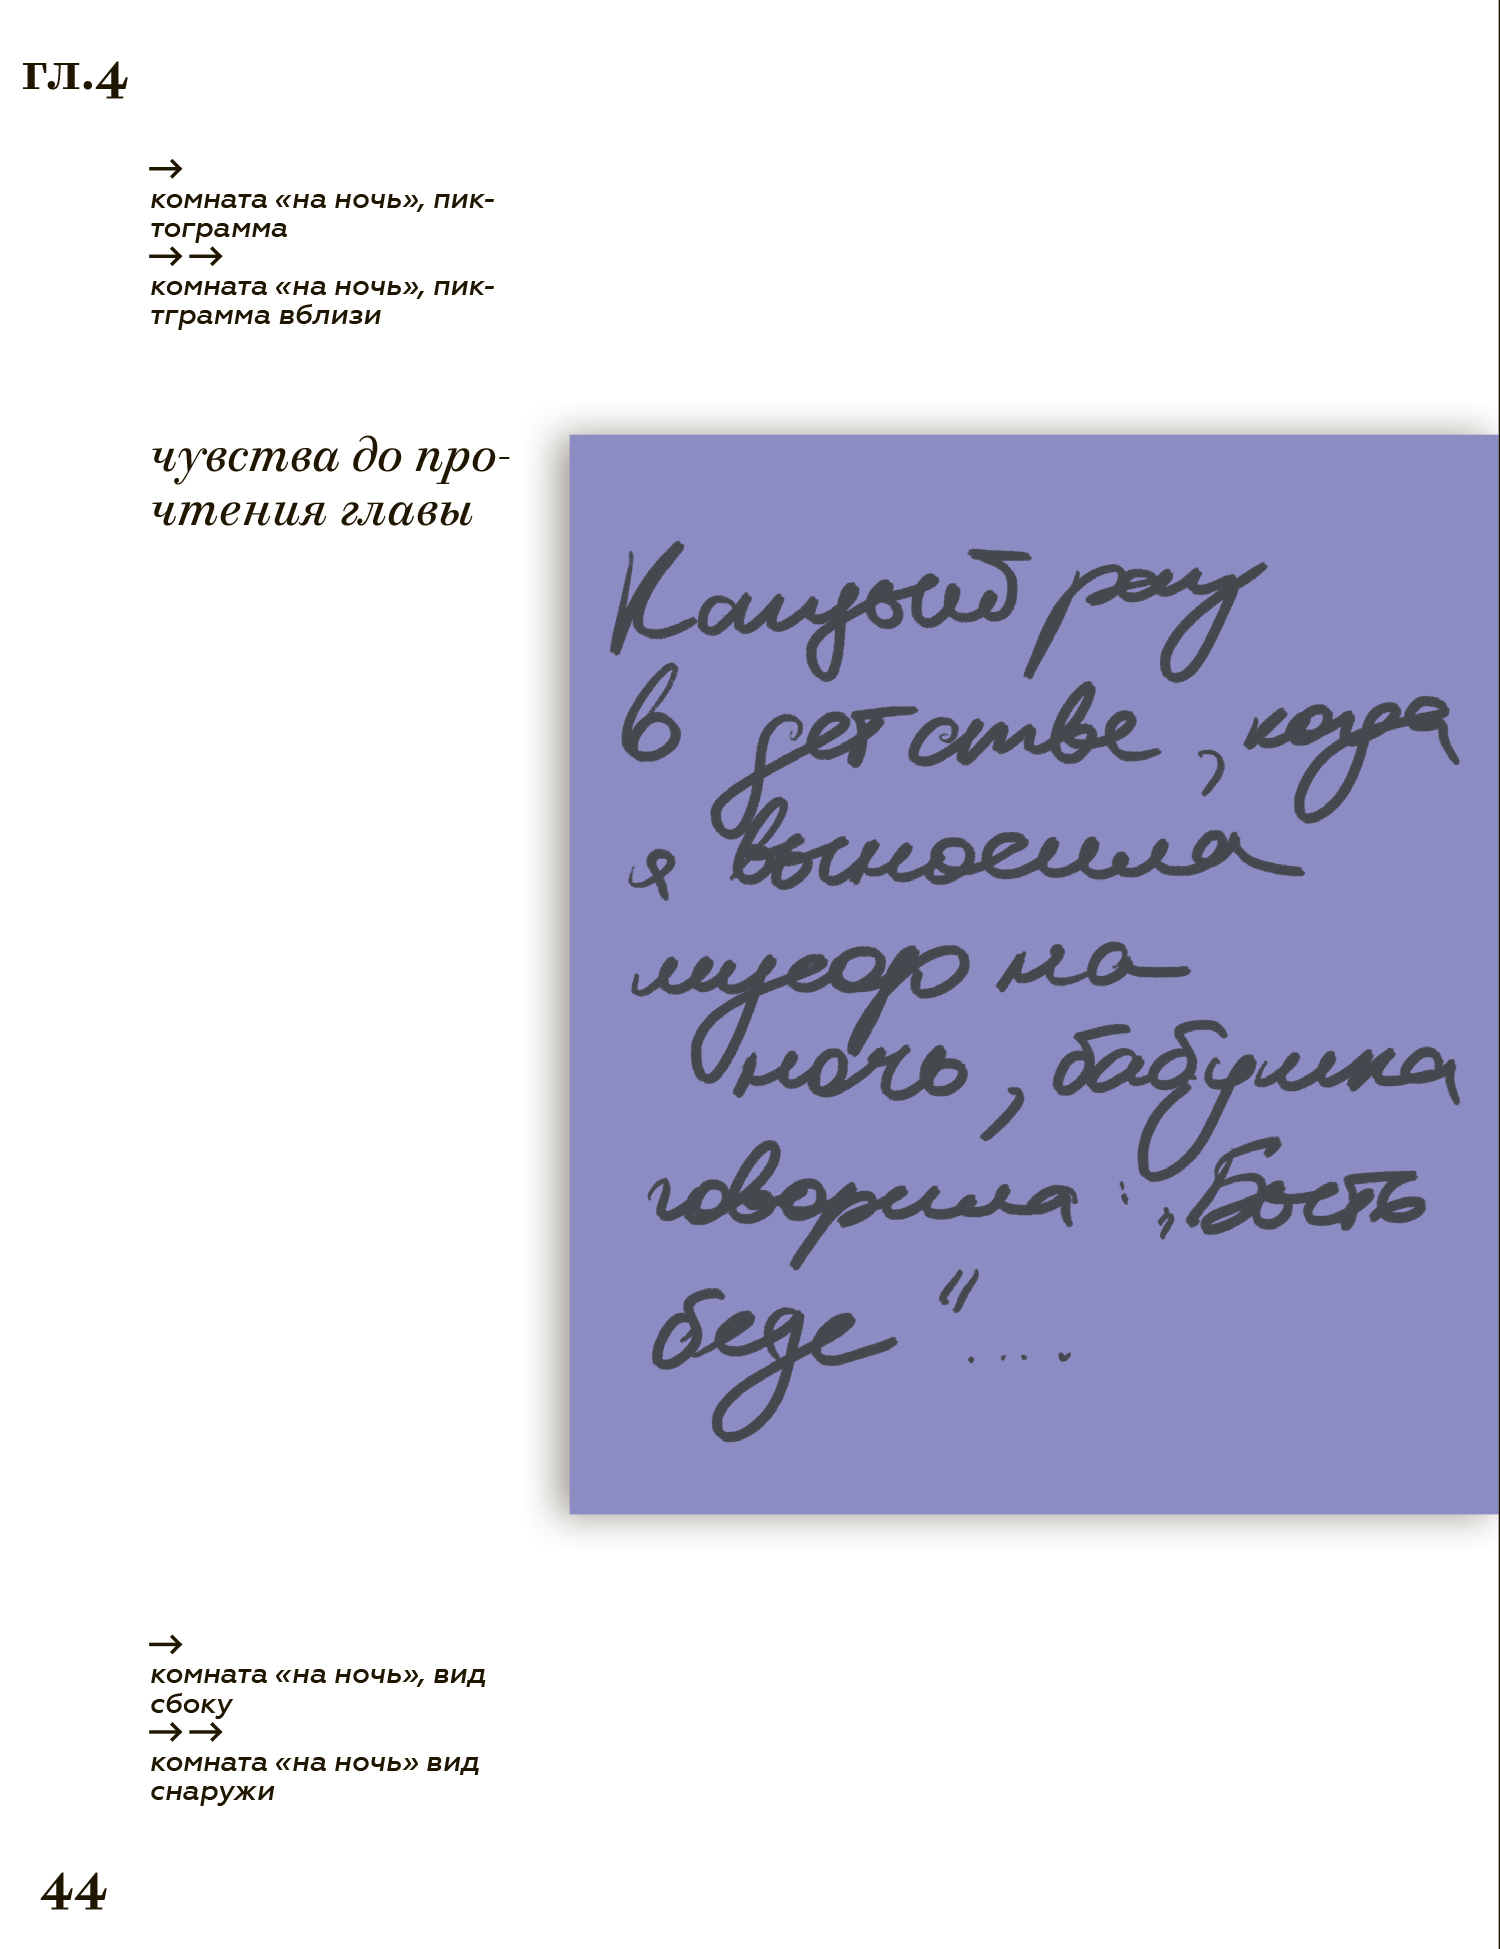 гл.4
→
комната «на ночь», пик-
тограмма
→→
комната «на ночь», пик-
тграмма вблизи
чувства до про-
чтения главы
Каждый раз
в детстве, когда
я выносила
мусор на
ночь, бабушка
говорила: „Быть
беде"....
→
комната «на ночь», вид
сбоку
→→
комната «на ночь» вид
снаружи
44